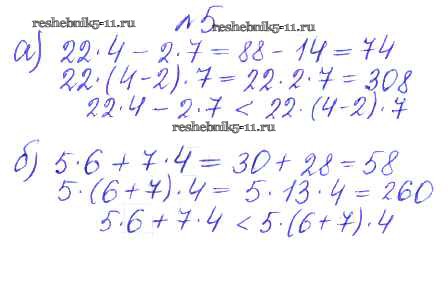 №5
reshebnik5-11.ru reshebnik5-11.ru
а) 22·4 - 2·7 = 88 - 14 = 74
22·(4-2)·7 = 22·2·7 = 308
22·4 - 2·7 < 22·(4-2)·7
reshebnik5-11.ru
б) 5·6 + 7·4 = 30 + 28 = 58
5·(6+7)·4 = 5·13·4 = 260
5·6 + 7·4 < 5·(6+7)·4